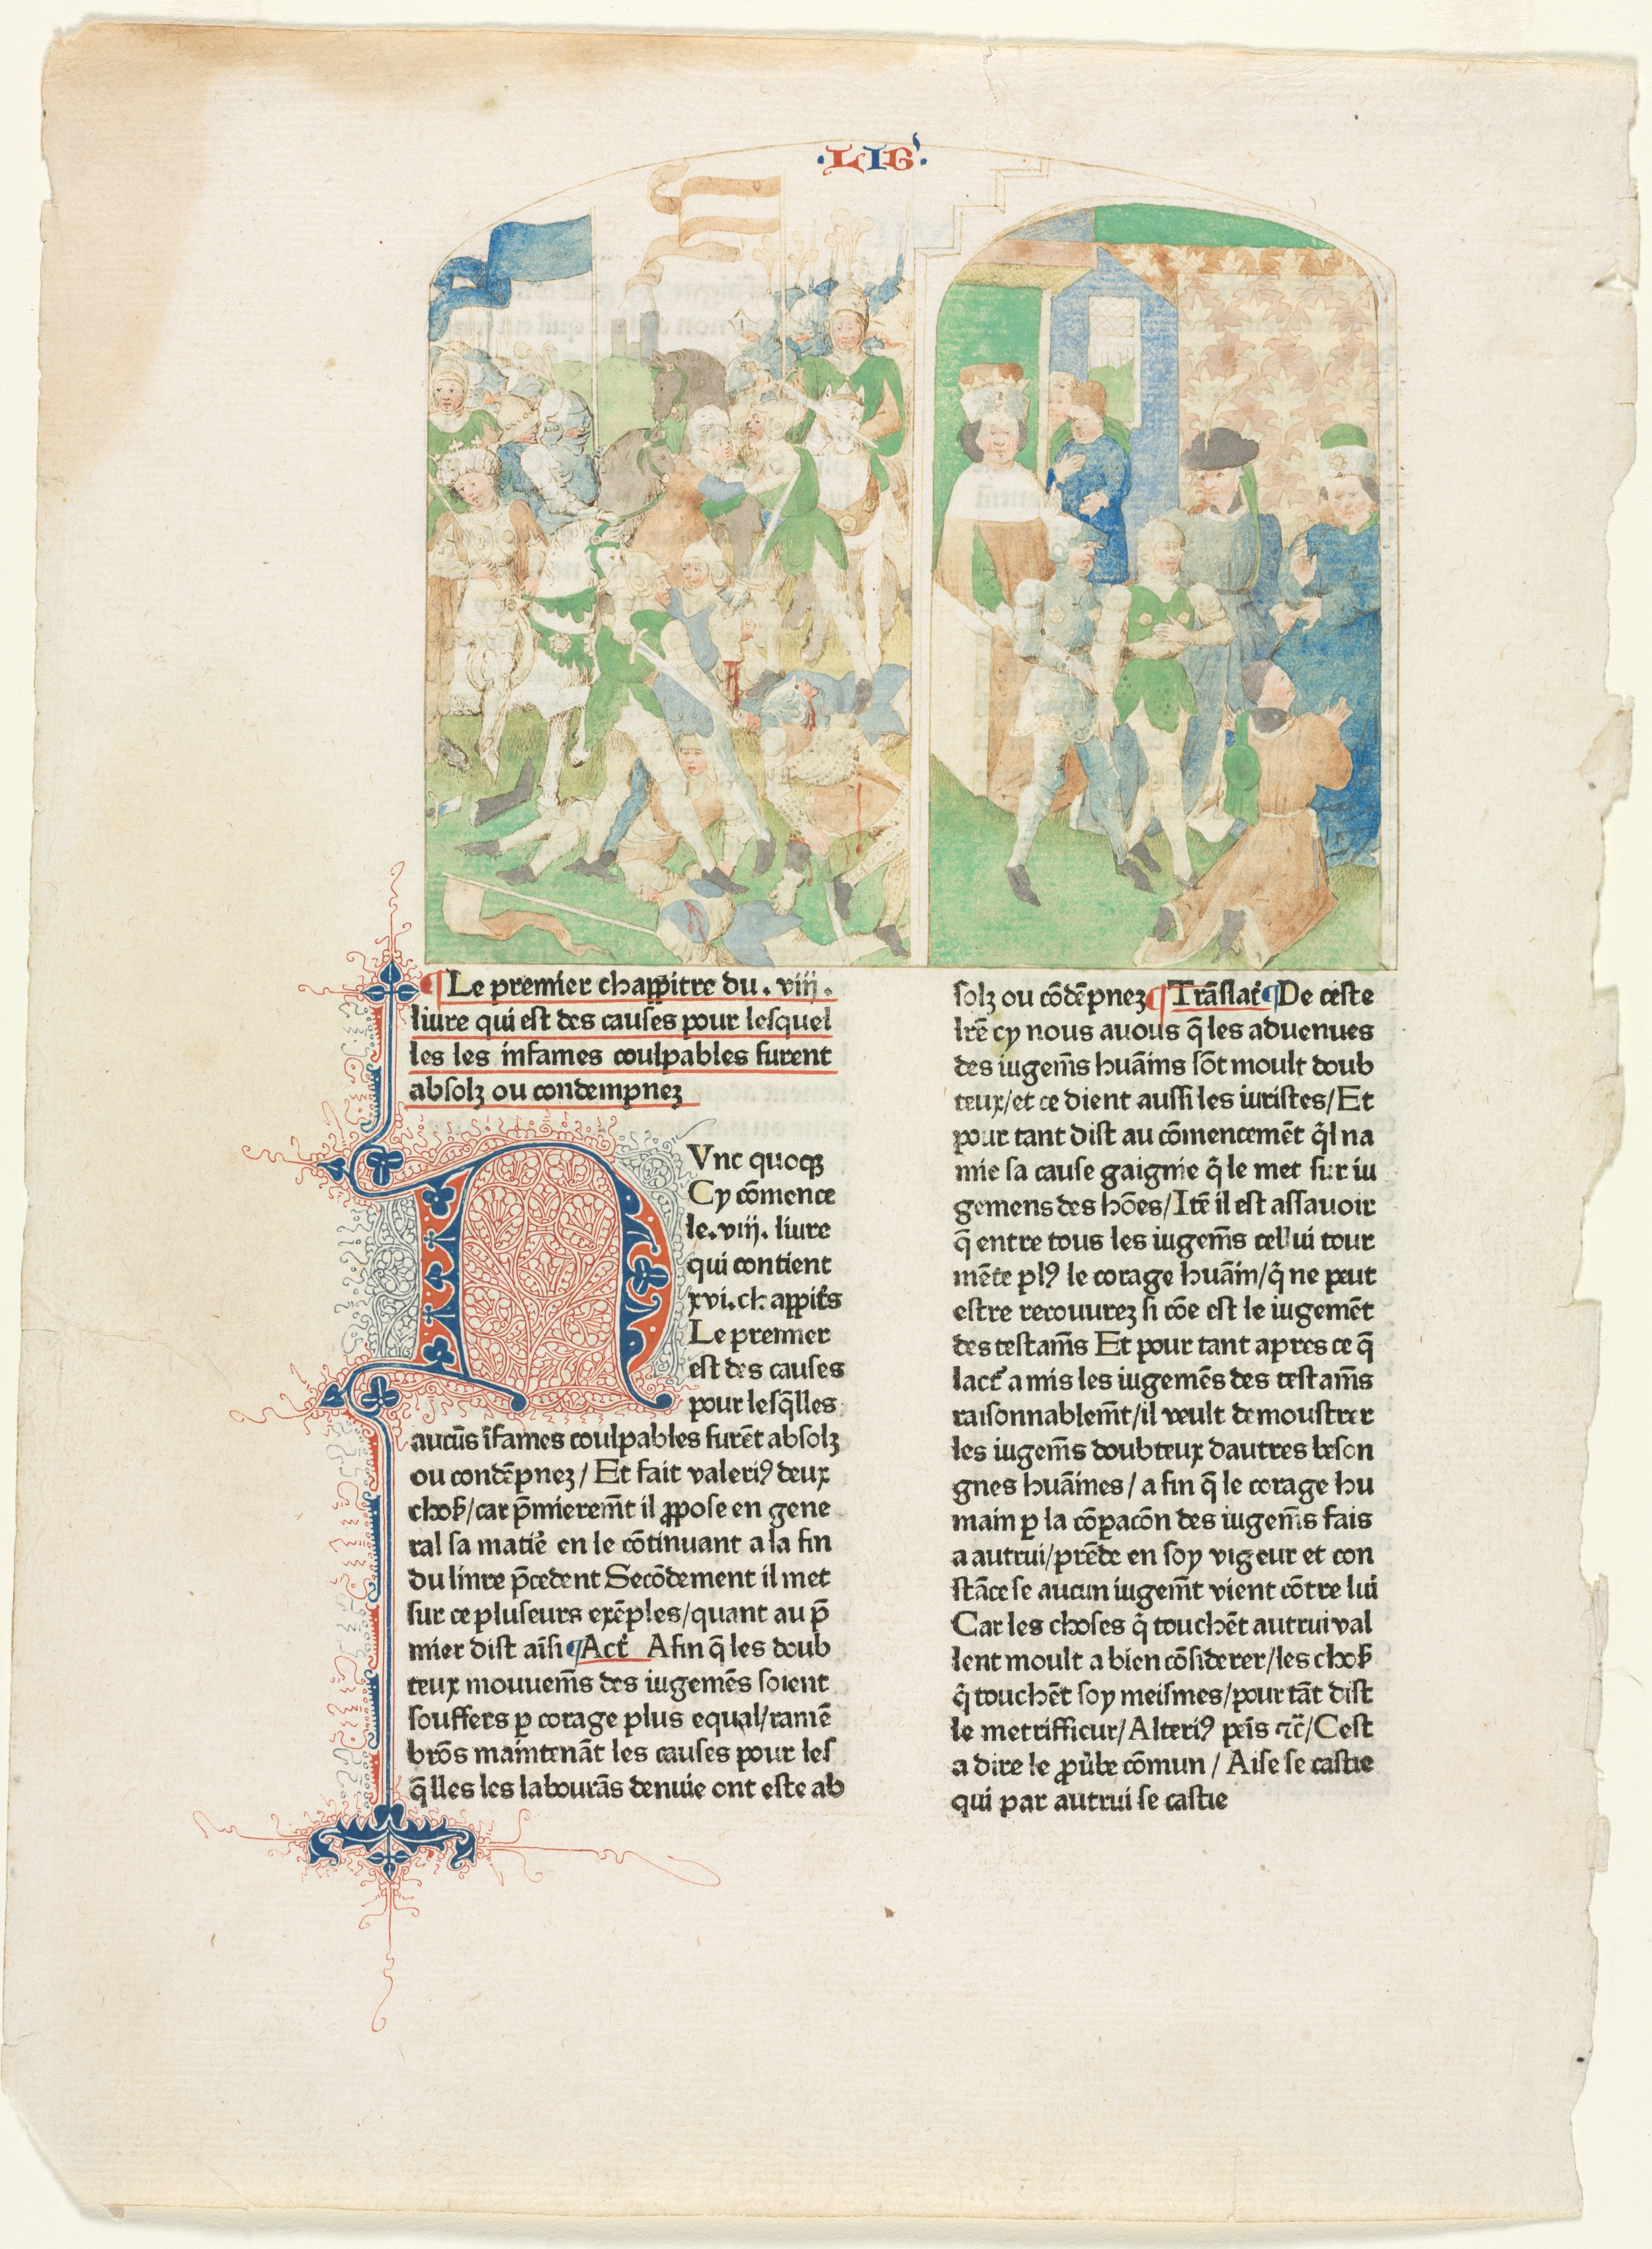 ·LIG'·
¶ Le premier chappitre du . viij .
liure qui est des causes pour lesquel
les les infames coulpables furent
absolz ou condempnez
NVnc quoqꝫ
Cy cōmence
le . viij . liure
qui contient
xvi . chappit̄s
Le premier
est des causes
pour lesq̄lles
aucūs īfames coulpables furēt absolz
ou condēpnez / Et fait valeriꝰ deux
choß / car p̄mierem̄t il ꝓpose en gene
ral sa matiē en le cōtinuant a la fin
du linre p̄cedent Secōdement il met
sur ce pluseurs exēples / quant au p̄
mier dist aīsi ¶ Act̄ Afin q̄ les doub
teux mouuem̄s des iugemēs soient
souffers ꝑ corage plus equal / ramē
brōs maintenāt les causes pour les
q̄lles les labourās denuie ont este ab
solz ou cōdēpnez ¶ Trāslat̄ ¶ De ceste
lrē cy nous auous q̄ les aduenues
des iugem̄s huāins sōt moult doub
teux / et ce dient aussi les iuristes / Et
pour tant dist au cōmencemēt q̄l na
mie sa cause gaignie q̄ le met sur iu
gemens des hōes / Itē il est assauoir
q̄ entre tous les iugem̄s cellui tour
mēte plꝰ le corage huāin / q̄ ne peut
estre recouurez si cōe est le iugemēt
des testam̄s Et pour tant apres ce q̄
lact̄ a mis les iugemēs des testam̄s
raisonnablem̄t / il veult demoustrer
les iugem̄s doubteux dautres beson
gnes huāines / a fin q̄ le corage hu
main ꝑ la cōꝑacōn des iugem̄s fais
a autrui / prēde en soy vigeur et con
stāce se aucun iugem̄t vient cōtre lui
Car les choses q̄ touchēt autrui val
lent moult a bien cōsiderer / les choß
q̄ touchēt soy meismes / pour tāt dist
le metrifficur / Alteriꝰ peīs ⁊c̄ / Cest
a dire le ꝓuībe cōmun / Aise se castie
qui par autrui se castie